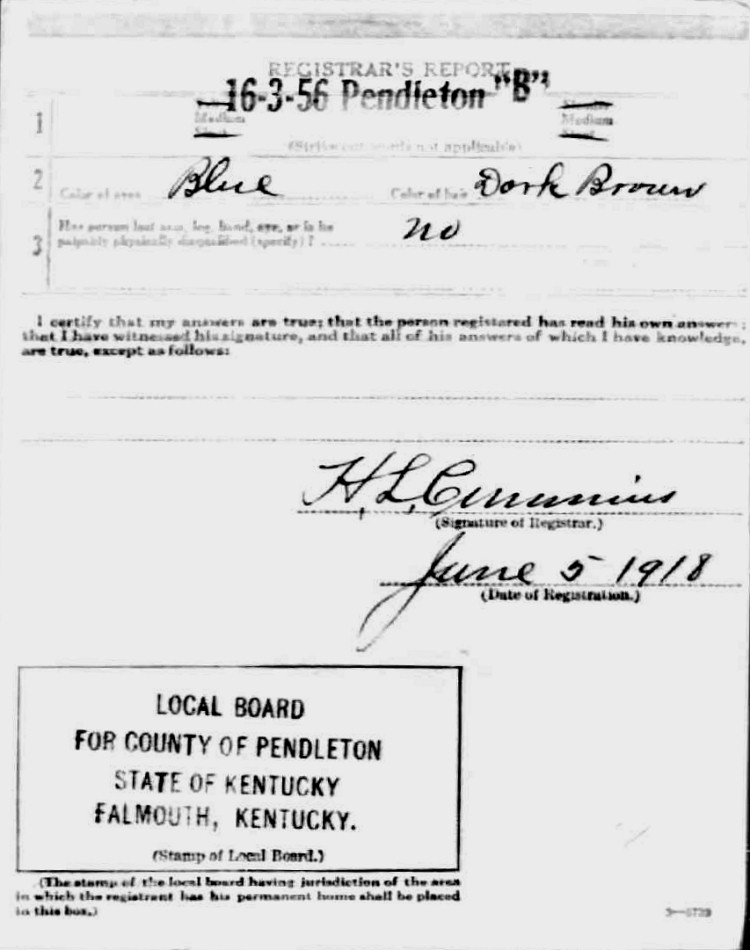 REGISTRAR'S REPORT
16-3-56 Pendleton "B"
1
Medium
Short
Slender
Medium
Stout
(Strike out words not applicable)
2 Color of eyes Blue Color of hair Dark Brown
3 Has person lost arm, leg, hand, eye, or is he
palpably physically disqualified (specify)? no
I certify that my answers are true; that the person registered has read his own answers;
that I have witnessed his signature, and that all of his answers of which I have knowledge,
are true, except as follows:
H. L. Cummins
(Signature of Registrar.)
June 5 1918
(Date of Registration.)
LOCAL BOARD
FOR COUNTY OF PENDLETON
STATE OF KENTUCKY
FALMOUTH, KENTUCKY.
(Stamp of Local Board.)
(The stamp of the local board having jurisdiction of the area
in which the registrant has his permanent home shall be placed
in this box.)
3—5729